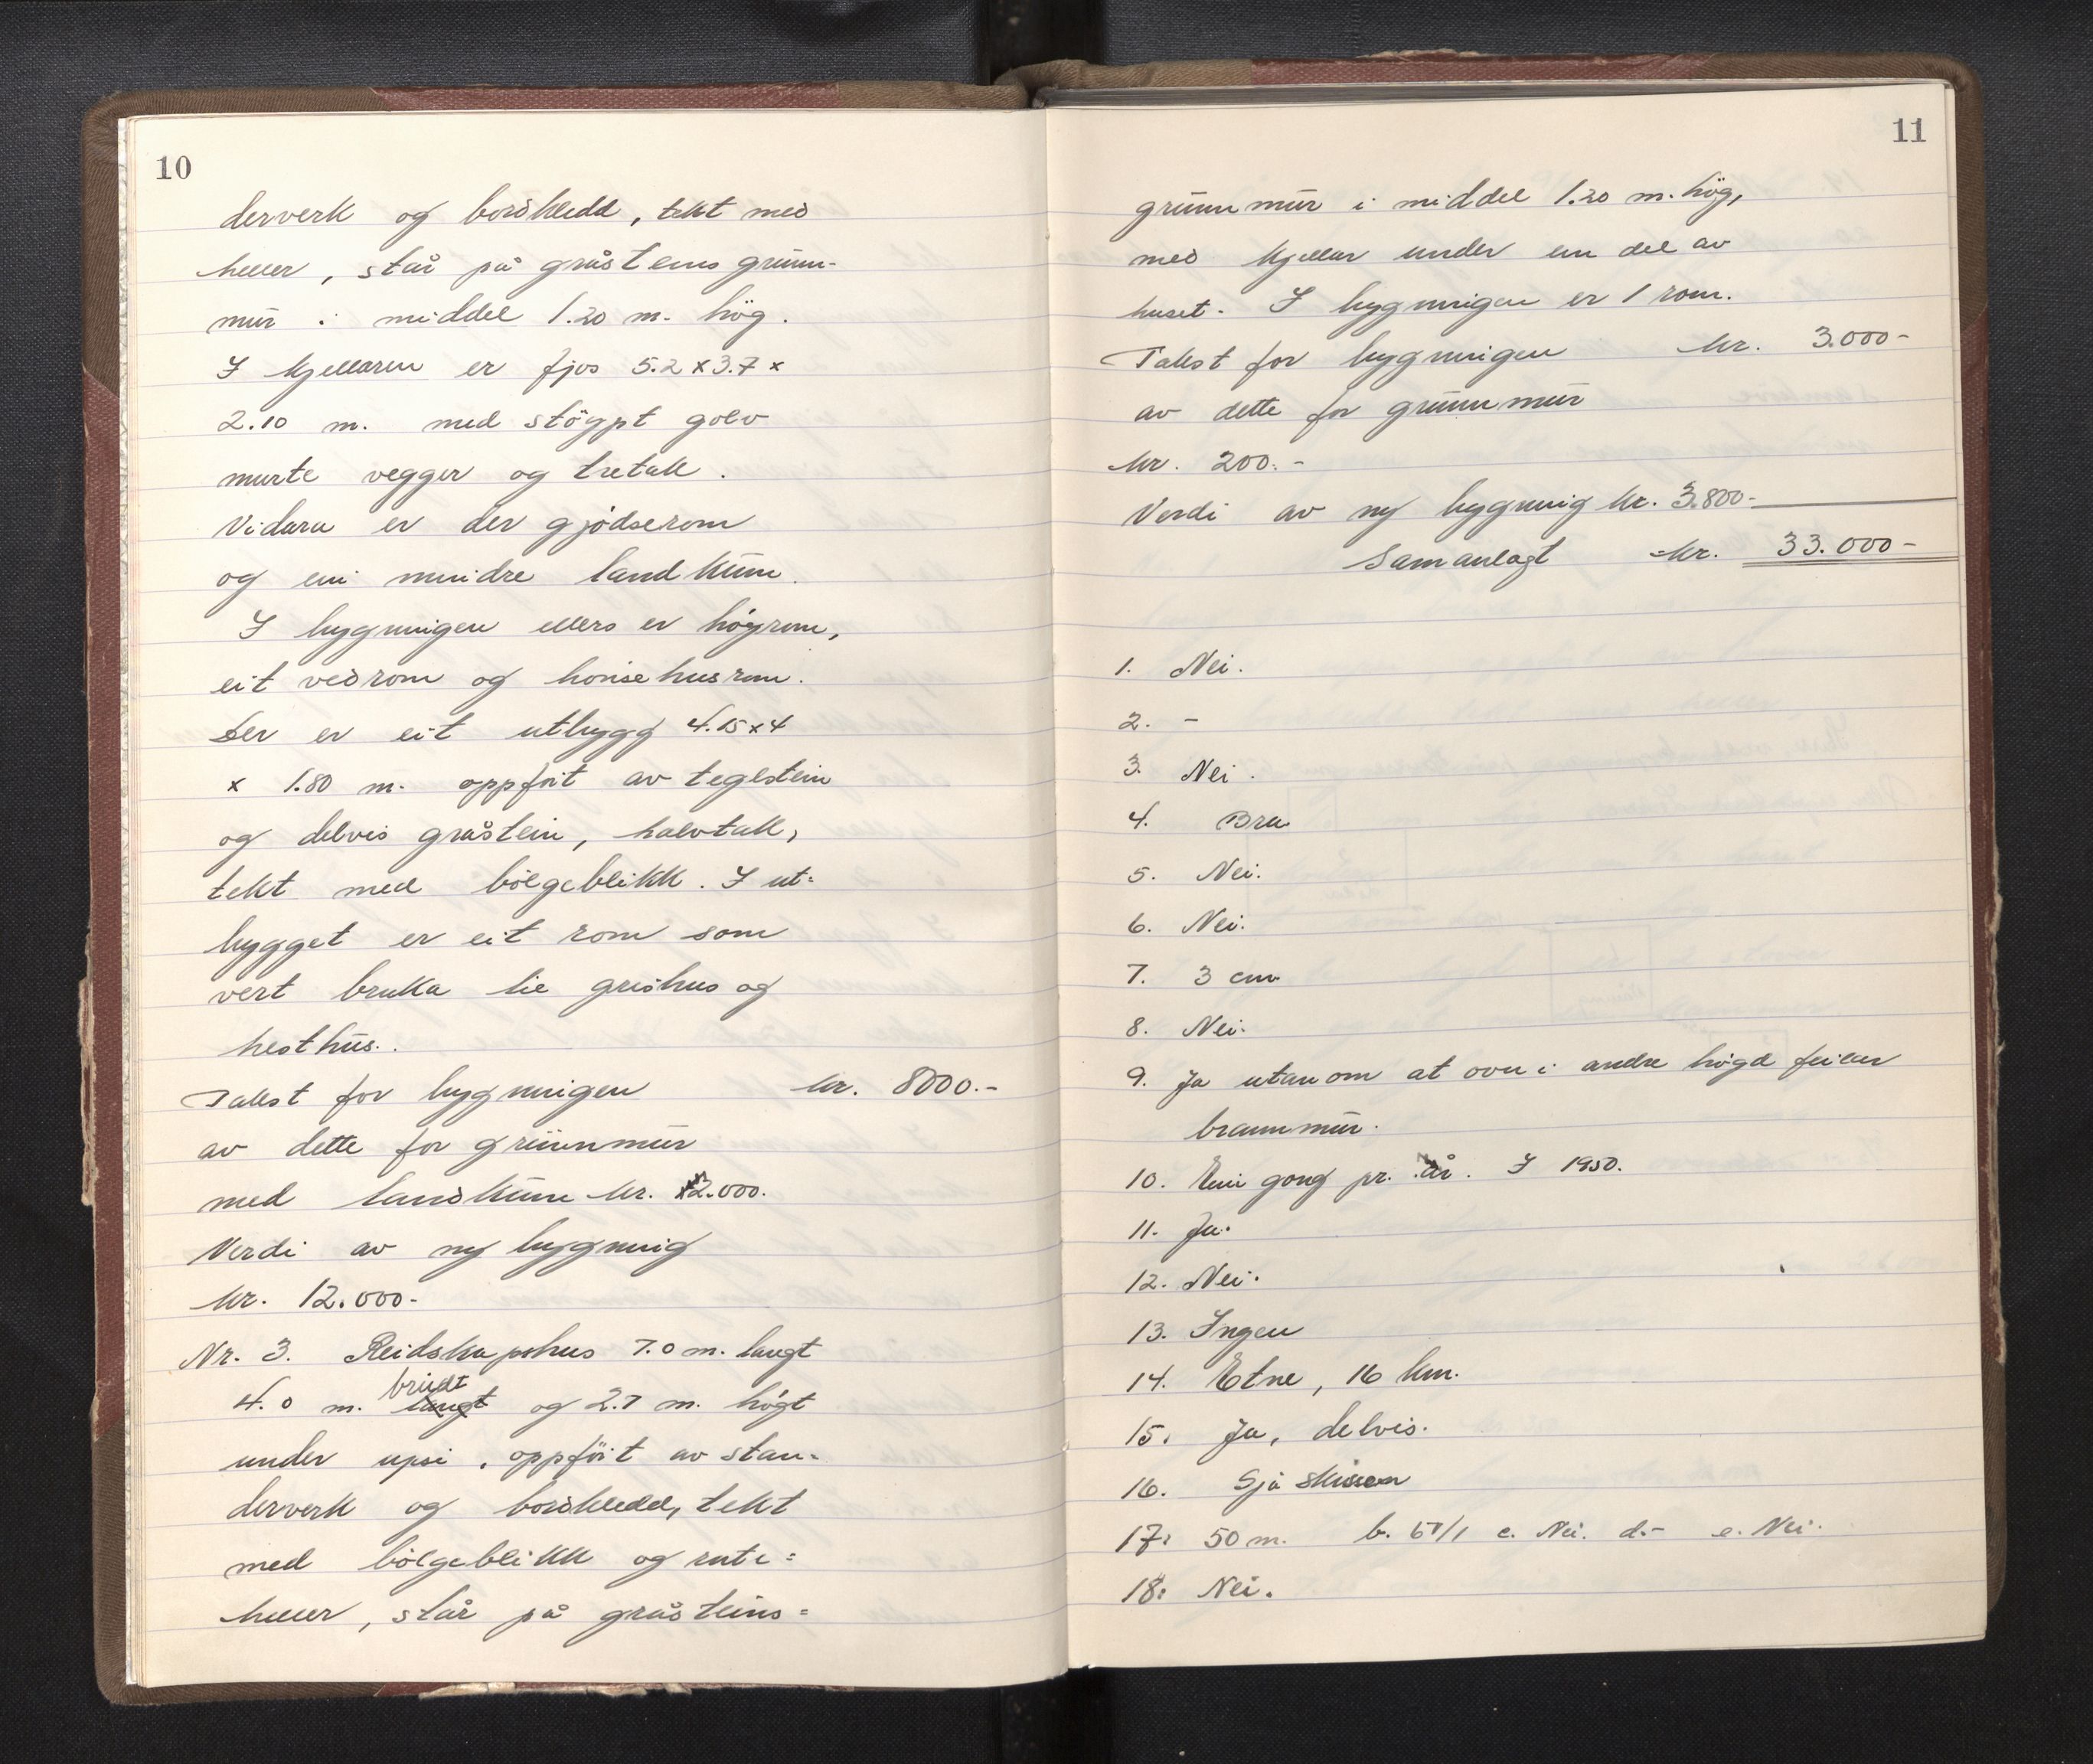 10
derverk og bordkledd, tekt med
heller, står på gråsteins grunn-
mur i middel 1.20 m. hög.
I kjellaren er fjos 5.2 x 3.7 x
2.10 m. med stöypt golv
murte vegger og tretak.
Vidare er der gjödselrom
og ein mindre landkum.
I bygningen ellers er höyrom,
eit vedrom og hönsehusrom.
Der er eit utbygg 4.15 x 4
x 1.80 m. oppfört av teglstein
og delvis gråstein, halvtak,
tekt med bölgeblikk. I ut=
bygget er eit rom som
vert bruka til grishus og
hesthus.
Takst for bygningen kr. 8000.-
av dette for grunnmur
med landkum kr. 2.000.
Verdi av ny bygning
kr. 12.000-
Nr. 3. Reidskapshus 7.0 m. langt
4.0 m. breidt og 2.7 m. högt
under upsi, oppfört av stan-
derverk og bordkledd, tekt
med bölgeblikk og rute=
heller, står på gråsteins=
11
grunnmur i middel 1.20 m. hög,
med kjellar under ein del av
huset. I bygningen er 1 rom.
Takst for bygningen kr. 3.000-
av dette for grunnmur
kr. 200.-
Verdi av ny bygning kr. 3.800-
Samanlagt kr. 33.000-
1. Nei.
2. -
3. Nei.
4. Bra
5. Nei.
6. Nei.
7. 3 cm
8. Nei.
9. Ja utanom at ovn i andre högd feilar
brannmur.
10. Ein gong pr. år. I 1950.
11. Ja.
12. Nei.
13. Ingen
14. Etne, 16 km.
15. Ja, delvis.
16. Sjå skissen
17. 50 m. b. c. Nei. d.- e. Nei.
18. Nei.